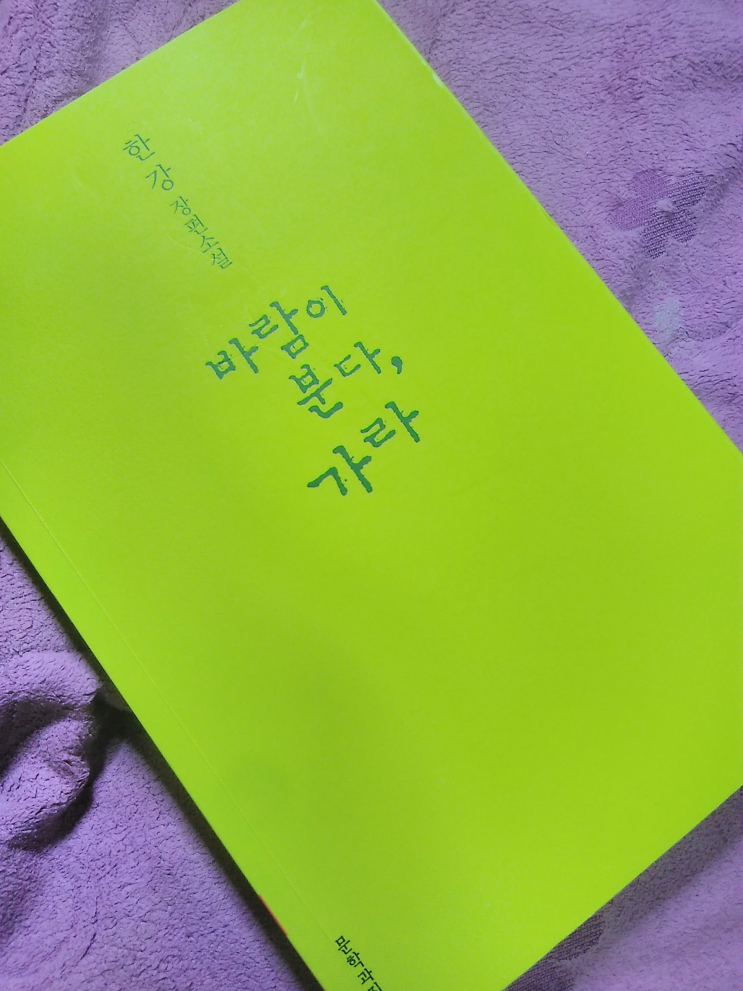 한강 장편소설
바람이
분다,
가라
문학과